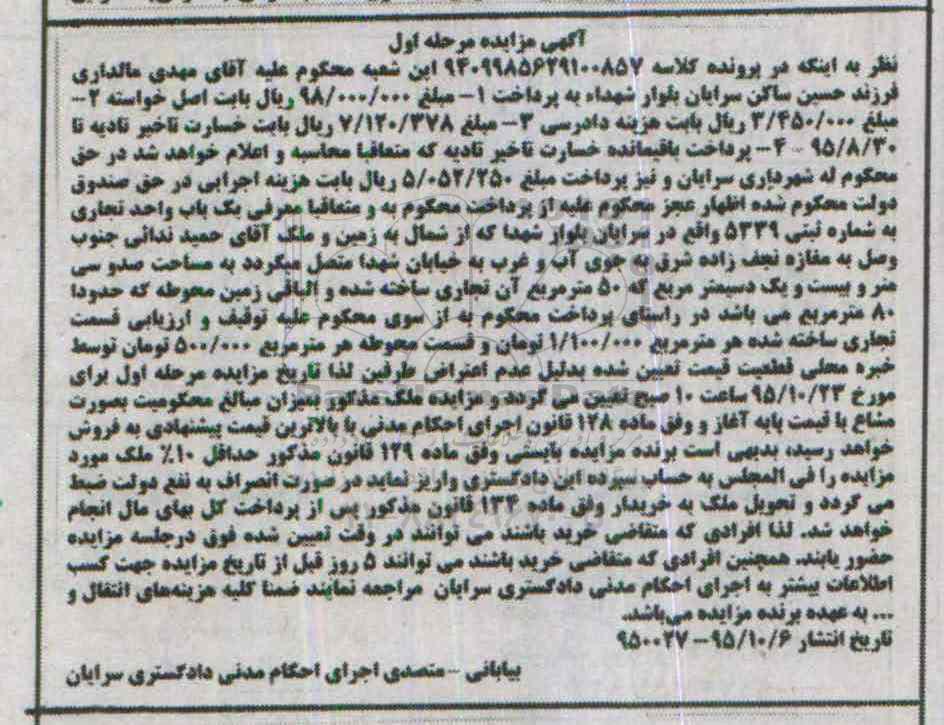 آگهی مزایده مرحله اول
نظر به اینکه در پرونده کلاسه ۹۴۰۹۹۸۵۶۲۹۱۰۰۸۵۷ این شعبه محکوم علیه آقای مهدی مالداری
فرزند حسین ساکن سرایان بلوار شهداء به پرداخت ۱- مبلغ ۹۸/۰۰۰/۰۰۰ ریال بابت اصل خواسته ۲-
مبلغ ۳/۴۵۰/۰۰۰ ریال بابت هزینه دادرسی ۳- مبلغ ۷/۱۲۰/۳۷۸ ریال بابت خسارت تاخیر تادیه تا
۹۵/۸/۳۰ - ۴- پرداخت باقیمانده خسارت تاخیر تادیه که متعاقبا محاسبه و اعلام خواهد شد در حق
محکوم له شهرداری سرایان و نیز پرداخت مبلغ ۵/۰۵۲/۲۵۰ ریال بابت هزینه اجرایی در حق صندوق
دولت محکوم شده اظهار عجز محکوم علیه از پرداخت محکوم به و متعاقبا معرفی یک باب واحد تجاری
به شماره ثبتی ۵۳۳۹ واقع در سرایان بلوار شهدا که از شمال به زمین و ملک آقای حمید ندائی جنوب
وصل به مغازه نجف زاده شرق به جوی آب و غرب به خیابان شهدا متصل میگردد به مساحت صدو سی
متر و بیست و یک دسیمتر مربع که ۵۰ مترمربع آن تجاری ساخته شده و الباقی زمین محوطه که حدودا
۸۰ مترمربع می باشد در راستای پرداخت محکوم به از سوی محکوم علیه توقیف و ارزیابی قسمت
تجاری ساخته شده هر مترمربع ۱/۱۰۰/۰۰۰ تومان و قسمت محوطه هر مترمربع ۵۰۰/۰۰۰ تومان توسط
خبره محلی قطعیت قیمت تعیین شده بدلیل عدم اعتراض طرفین لذا تاریخ مزایده مرحله اول برای
مورخ ۹۵/۱۰/۲۳ ساعت ۱۰ صبح تعیین می گردد و مزایده ملک مذکور بمیزان مبالغ محکومیت بصورت
مشاع با قیمت پایه آغاز و وفق ماده ۱۲۸ قانون اجرای احکام مدنی با بالاترین قیمت پیشنهادی به فروش
خواهد رسید، بدیهی است برنده مزایده بایستی وفق ماده ۱۲۹ قانون مذکور حداقل ۱۰٪ ملک مورد
مزایده را فی المجلس به حساب سپرده این دادگستری واریز نماید در صورت انصراف به نفع دولت ضبط
می گردد و تحویل ملک به خریدار وفق ماده ۱۳۴ قانون مذکور پس از پرداخت کل بهای مال انجام
خواهد شد. لذا افرادی که متقاضی خرید باشند می توانند در وقت تعیین شده فوق درجلسه مزایده
حضور یابند. همچنین افرادی که متقاضی خرید باشند می توانند ۵ روز قبل از تاریخ مزایده جهت کسب
اطلاعات بیشتر به اجرای احکام مدنی دادگستری سرایان مراجعه نمایند ضمنا کلیه هزینه‌های انتقال و
... به عهده برنده مزایده می‌باشد.
تاریخ انتشار ۹۵/۱۰/۶- ۹۵۰۰۲۷
بیابانی - متصدی اجرای احکام مدنی دادگستری سرایان